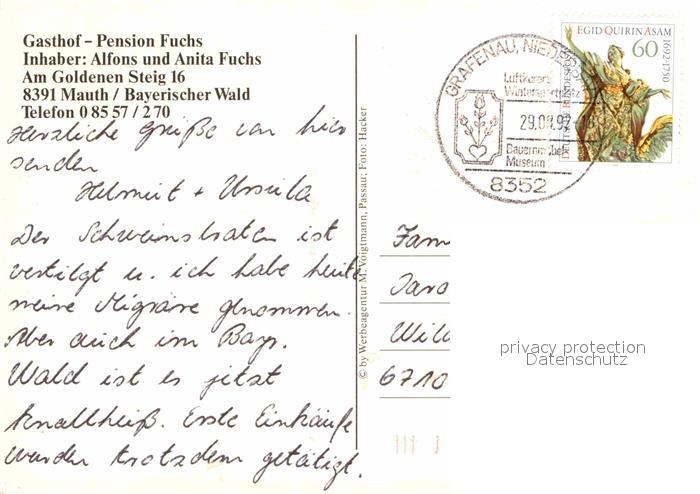 Gasthof – Pension Fuchs
Inhaber: Alfons und Anita Fuchs
Am Goldenen Steig 16
8391 Mauth / Bayerischer Wald
Telefon 0 85 57 / 2 70
Herzliche Grüße von hier
senden
Helmut + Ursula
Der Schweinsbraten ist
vertilgt u. ich habe heute
meine Migräne genommen.
Aber auch im Bayr.
Wald ist es jetzt
knallheiß. Erste Einkäufe
wurden trotzdem getätigt.
© by Werbeagentur M. Voigtmann, Passau; Foto: Hacker
GRAFENAU, NIEDER
Luftkurort
Wintersportplatz
29.08.92
Bauernmöbel
Museum
8352
EGID QUIRIN ASAM
1692-1750
60
DEUTSCHE BUNDESPOST
Fam
Wil
6710
privacy protection
Datenschutz